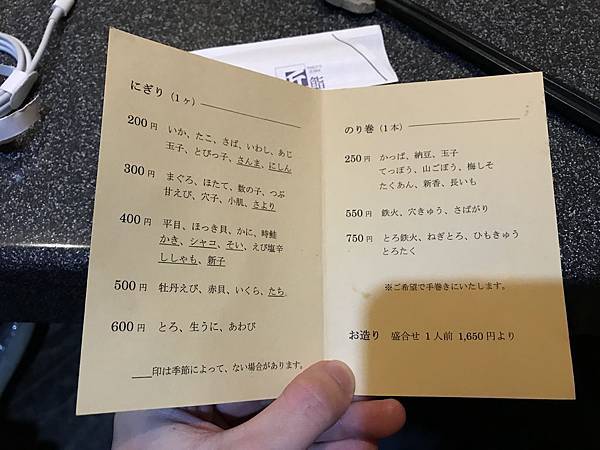 にぎり（1ヶ）
200円 いか、たこ、さば、いわし、あじ
玉子、とびっ子、さんま、にしん
300円 まぐろ、ほたて、数の子、つぶ
甘えび、穴子、小肌、さより
400円 平目、ほっき貝、かに、時鮭
かき、シャコ、そい、えび塩辛
ししゃも、新子
500円 牡丹えび、赤貝、いくら、たち
600円 とろ、生うに、あわび
___印は季節によって、ない場合があります。
のり巻（1本）
250円 かっぱ、納豆、玉子
てっぽう、山ごぼう、梅しそ
たくあん、新香、長いも
550円 鉄火、穴きゅう、さばがり
750円 とろ鉄火、ねぎとろ、ひもきゅう
とろたく
※ご希望で手巻きにいたします。
お造り 盛合せ 1人前 1,650円より
鮨